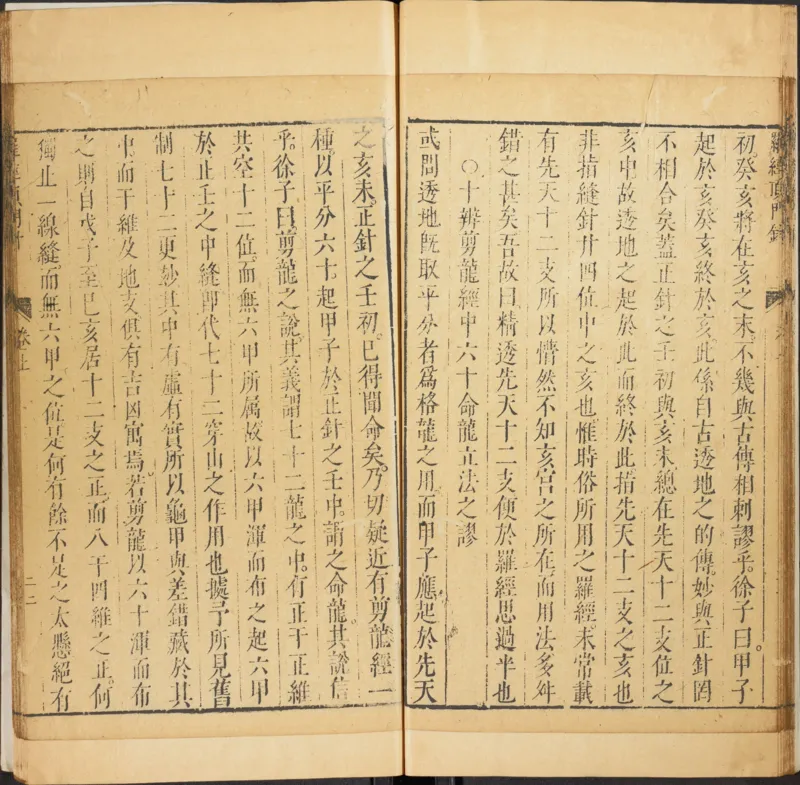 羅經頂門針
初癸亥將在亥之末不幾與古傳相刺謬乎。徐子曰。甲子
起於亥癸亥終於亥此係自古透地之的傳。妙與正針罔
不相合矣蓋正針之壬初與亥末總在先天十二支位之
亥中故透地之起於此而終於此指先天十二支之亥也
非指縫針廿四位中之亥也惟時俗所用之羅經。未常載
有先天十二支所以懵然不知亥宮之所在而用法多舛
錯之甚矣吾故曰精透先天十二支便於羅經思過半也
○十辨剪龍經中六十命龍立法之謬
或問透地既取平分者爲格龍之用而甲子應起於先天
之亥末。正針之壬初。已得聞命矣。乃切疑近有剪龍經一
種以平分六十起甲子於正針之壬中。謂之命龍。其說信
乎。徐子曰。剪龍之說。其義謂七十二龍之中。有正干正維
共空十二位。而無六甲所属。故以六甲渾而布之起六甲
於正壬之中縫卽代七十二穿山之作用也據予所見舊
制七十二更妙其中有虛有實所以龜甲與差錯藏於其
中。而干維及地支俱有吉凶寓焉。若剪龍以六十渾而布
之則自戊子至巳亥居十二支之正。而八干四維之正。何
獨止一線縫。而無六甲之位是何有餘不足之太懸絕有
羅經頂門針
卷上
二二